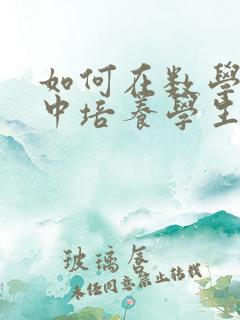 如何在数學
中培養學生
玻璃唇
未经同意禁止转载